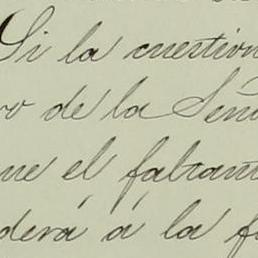 Si la cuestion
de la Seño
ue el fabricant
derá á la f